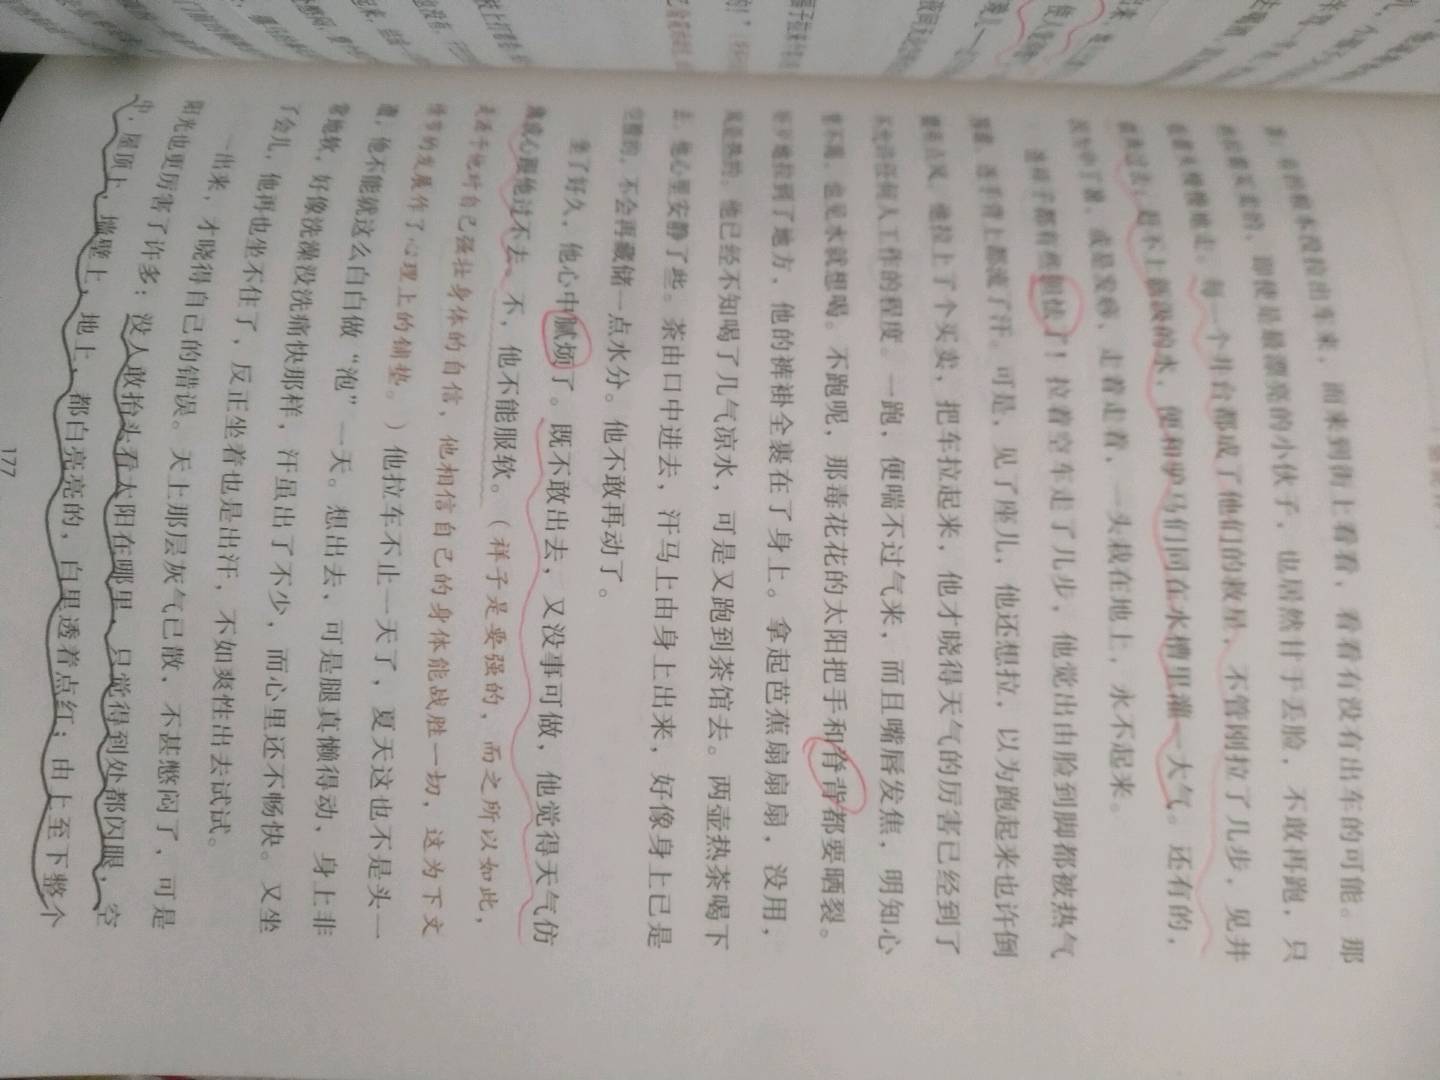 些，有的根本没拉出车来，而来到街上看看，看看有没有出车的可能。那
些拉着买卖的，即使是最漂亮的小伙子，也居然甘于丢脸，不敢再跑，只
低着头慢慢地走。每一个井台都成了他们的救星，不管刚拉了几步，见井
就奔过去；赶不上新汲的水，便和驴马们同在水槽里灌一大气。还有的，
因为中了暑，或是发痧，走着走着，一头栽在地上，永不起来。
连祥子都有些胆怯了！拉着空车走了几步，他觉出由脸到脚都被热气
围着，连手背上都流了汗。可是，见了座儿，他还想拉，以为跑起来也许倒
能有点风。他拉上了个买卖，把车拉起来，他才晓得天气的厉害已经到了
不允许任何人工作的程度。一跑，便喘不过气来，而且嘴唇发焦，明知心
里不渴，也见水就想喝。不跑呢，那毒花花的太阳把手和脊背都要晒裂。
好歹地拉到了地方，他的裤褂全裹在了身上。拿起芭蕉扇扇扇，没用，
风是热的。他已经不知喝了几气凉水，可是又跑到茶馆去。两壶热茶喝下
去，他心里安静了些。茶由口中进去，汗马上由身上出来，好像身上已是
空膛的，不会再藏储一点水分。他不敢再动了。
坐了好久，他心中腻烦了。既不敢出去，又没事可做，他觉得天气仿
佛成心跟他过不去。不，他不能服软。（祥子是要强的，而之所以如此，
是源于他对自己强壮身体的自信，他相信自己的身体能战胜一切，这为下文
情节的发展作了心理上的铺垫。）他拉车不止一天了，夏天这也不是头一
遭，他不能就这么白白做“泡”一天。想出去，可是腿真懒得动，身上非
常地软，好像洗澡没洗痛快那样，汗虽出了不少，而心里还不畅快。又坐
了会儿，他再也坐不住了，反正坐着也是出汗，不如爽性出去试试。
一出来，才晓得自己的错误。天上那层灰气已散，不甚憋闷了，可是
阳光也更厉害了许多：没人敢抬头看太阳在哪里，只觉得到处都闪眼，空
中，屋顶上，墙壁上，地上，都白亮亮的，白里透着点红；由上至下整个
177